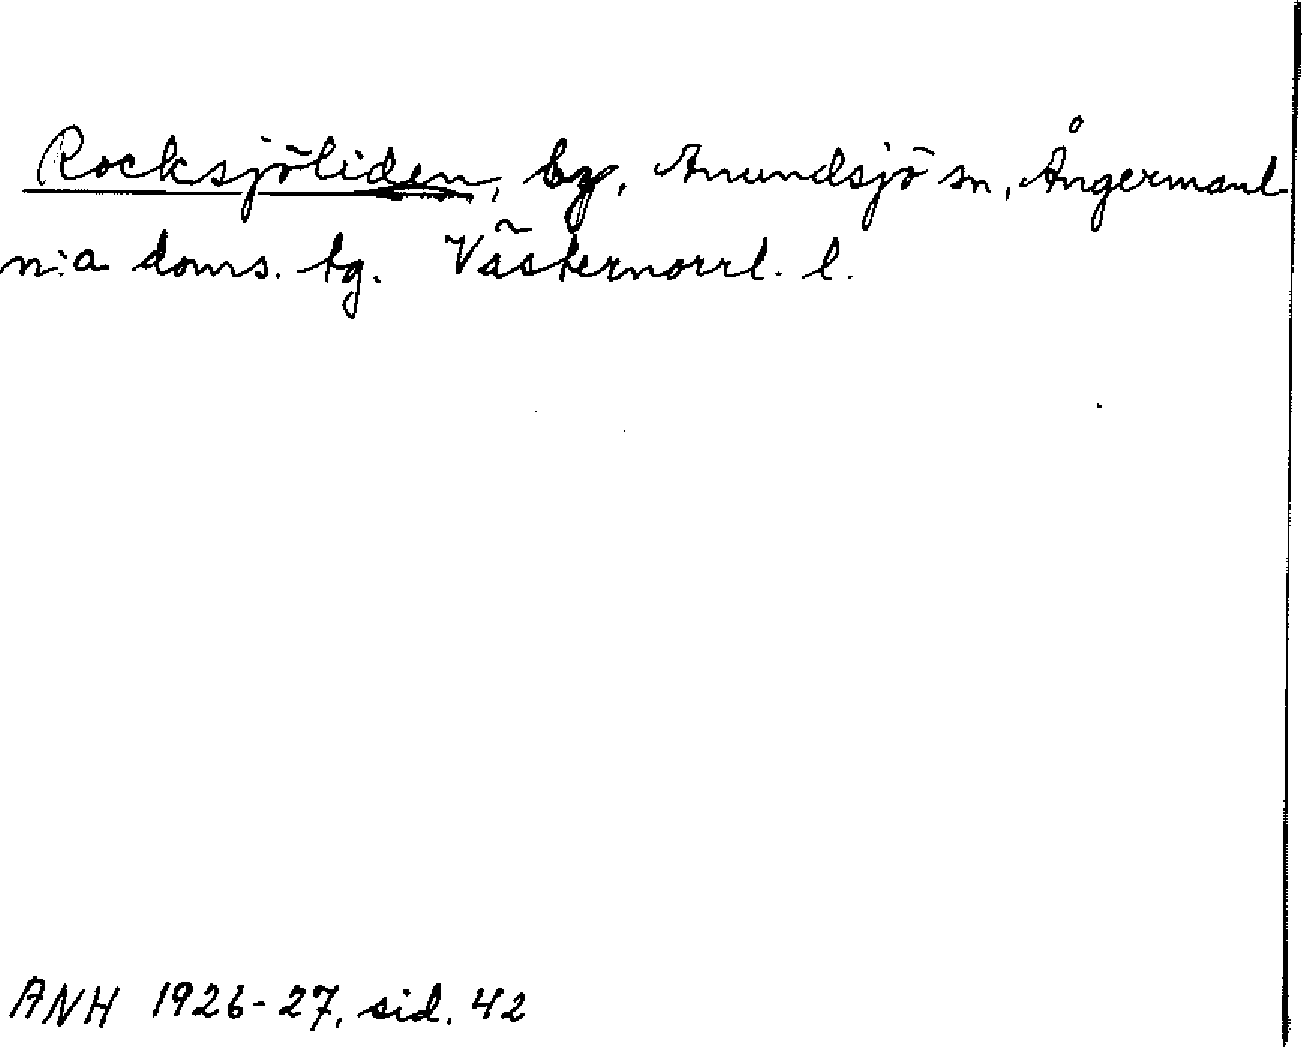 Rocksjöliden, by, Anundsjö sn, Ångermanl
n:a doms. tg. Västernorrl. l.
ANH 1926-27, sid. 42